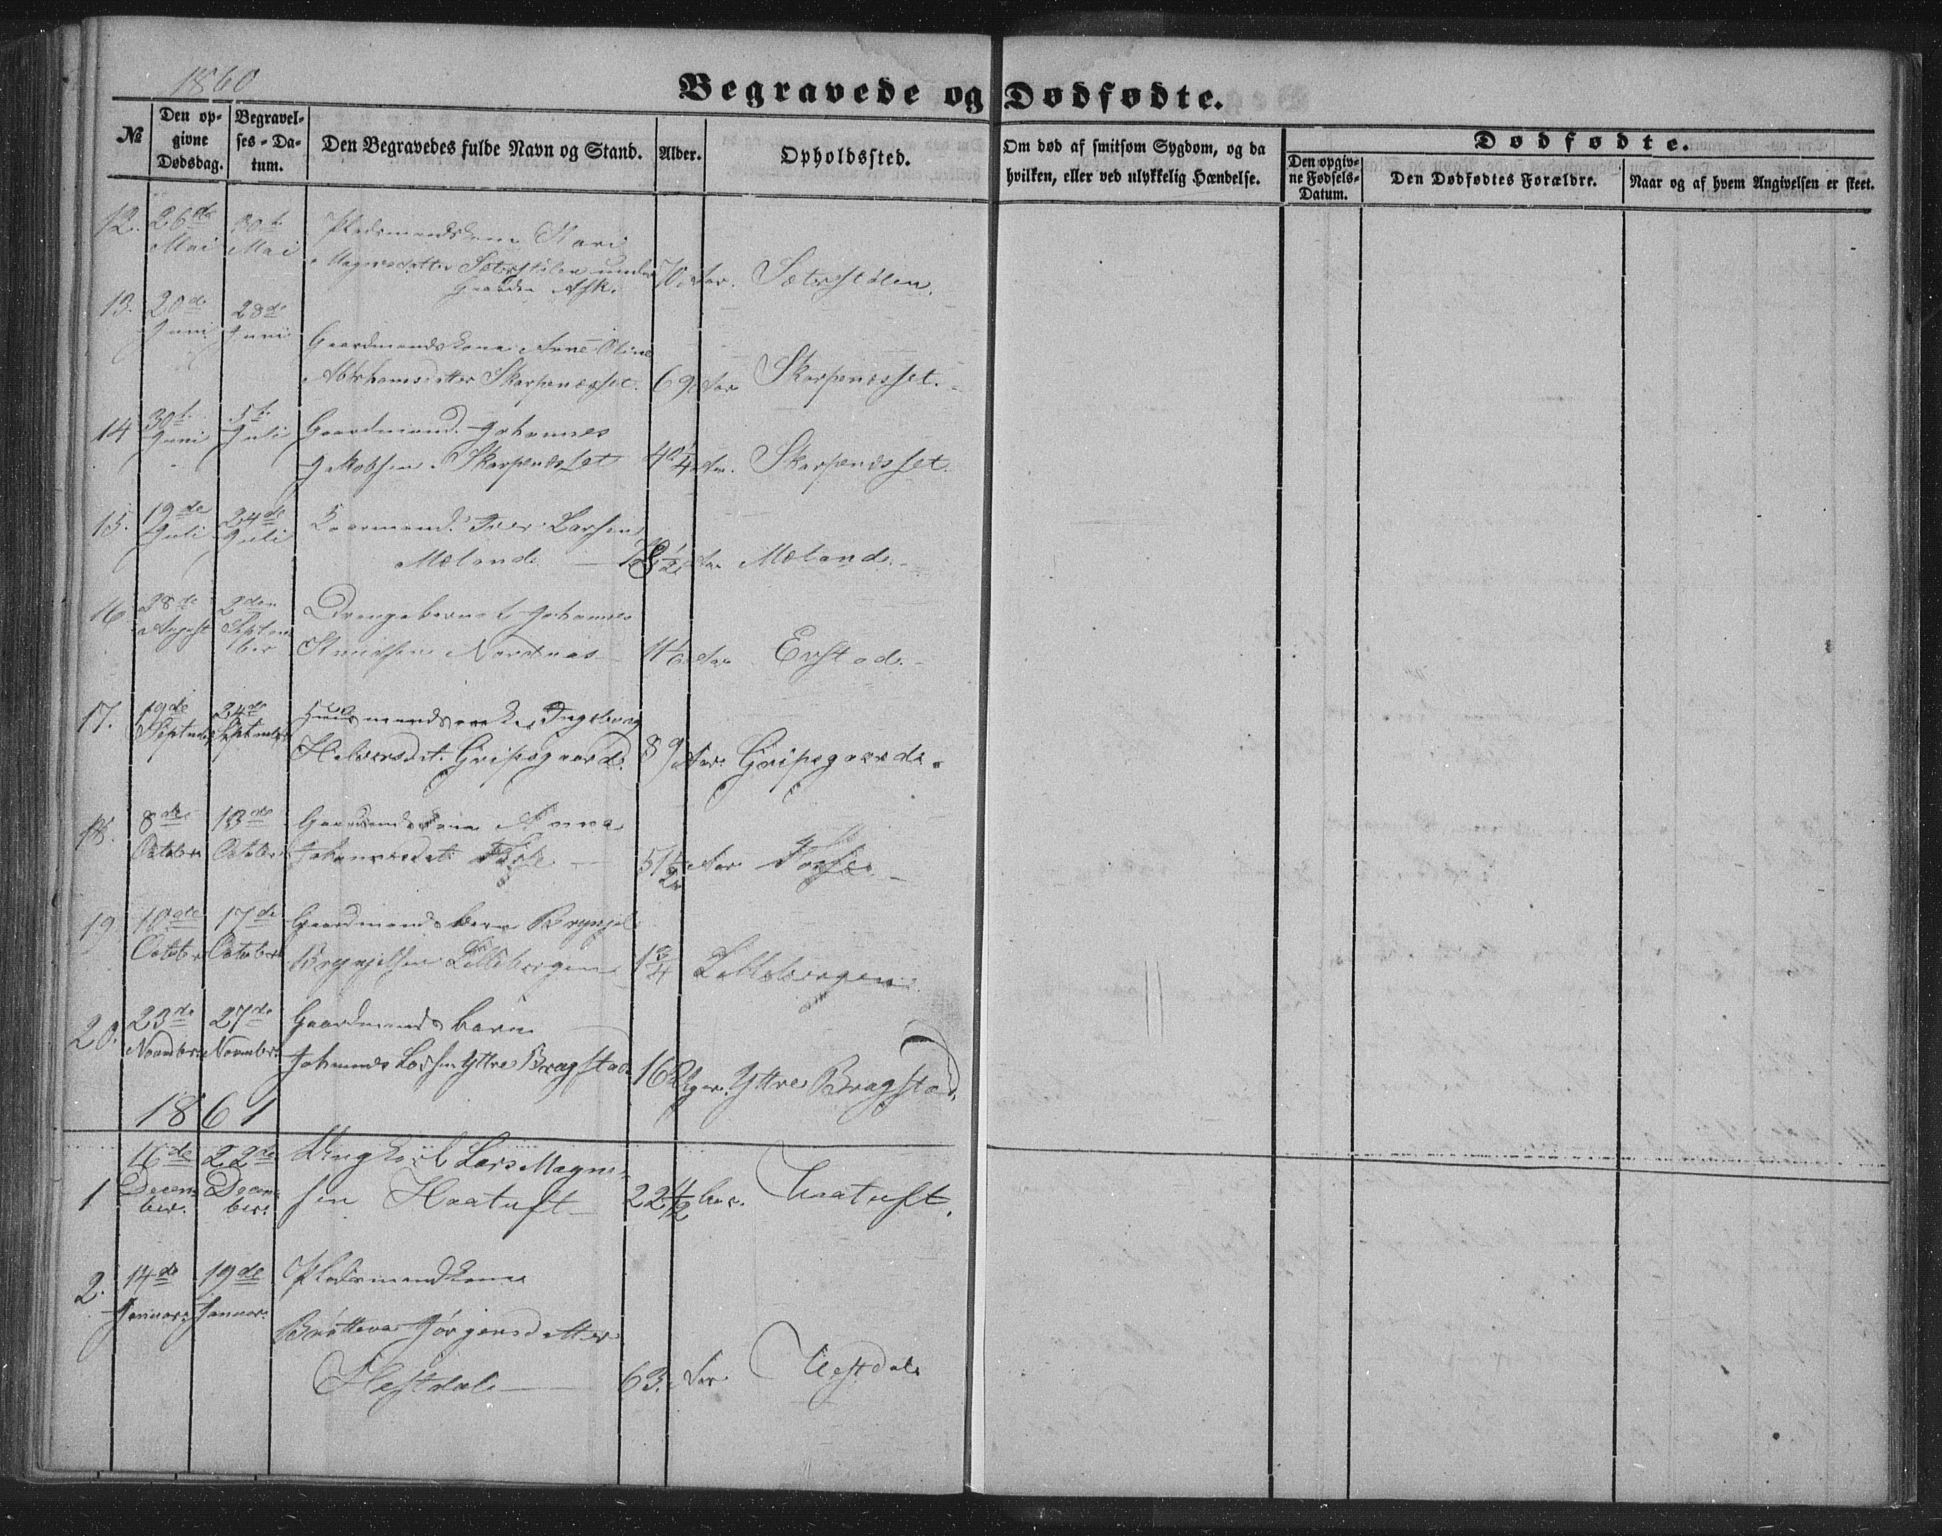 1860
Begravede og Dødfødte.
№
Den opgivne Dødsdag.
Begravelses-Datum.
Den Begravedes fulde Navn og Stand.
Alder.
Opholdssted.
Om død af smitsom Sygdom, og da hvilken, eller ved ulykkelig Hændelse.
Dødfødte.
Den opgivne Fødsels-Datum.
Den Dødfødtes Forældre.
Naar og af hvem Angivelsen er skeet.
12. 26de Mai 30te Mai Pladsmandskone Mari
Magnesdatter Sæterstølen under 70 Aar. Sæterstølen.
Gaarden Ask.
13. 20de Juni 28de Juni
Gaardmandskone Anne Oline
Abrahamsdatter Skarpenesset. 69 Aar Skarpenesset.
14 30te Juni 5te Juli Gaardmand Johannes
Jakobsen Skarpenesset 40 1/4 Aar. Skarpenesset.
15. 19de Juli 24de Juli Kaarmand Iver Larsen
Mælande 1/2 Aar Mælande.
16 28de August 2den September Drengebarnet Johannes
Knudsen Nordnæs Aar Evstad.
17. 19de September 24de September Huusmandsenke Ingeborg
Halversdt. Gripsgaard. 89 Aar Gripsgaarde.
18. 8de October 13de October Gaardmandskone Anna
Johannesdt. 51 1/2 Aar
19 10de October 17de October Gaardmandsbarn Brynjel
Brynjelsen Lillebergen 1 3/4 Lillebergen.
20. 23de November 27de November Gaardmandsbarn
Johannes Larsen Yttre Bragstad 16 Uger. Yttre Bragstad.
1861
1 16de December 22de December Ungkarl Lars Magnesen
Haatuft 22 1/2 Aar. Haatuft.
2. 14de Januar 19de Januar. Pladsmandkone
Britteva Jørgensdatter
Hestdale 63. Aar Hestdale